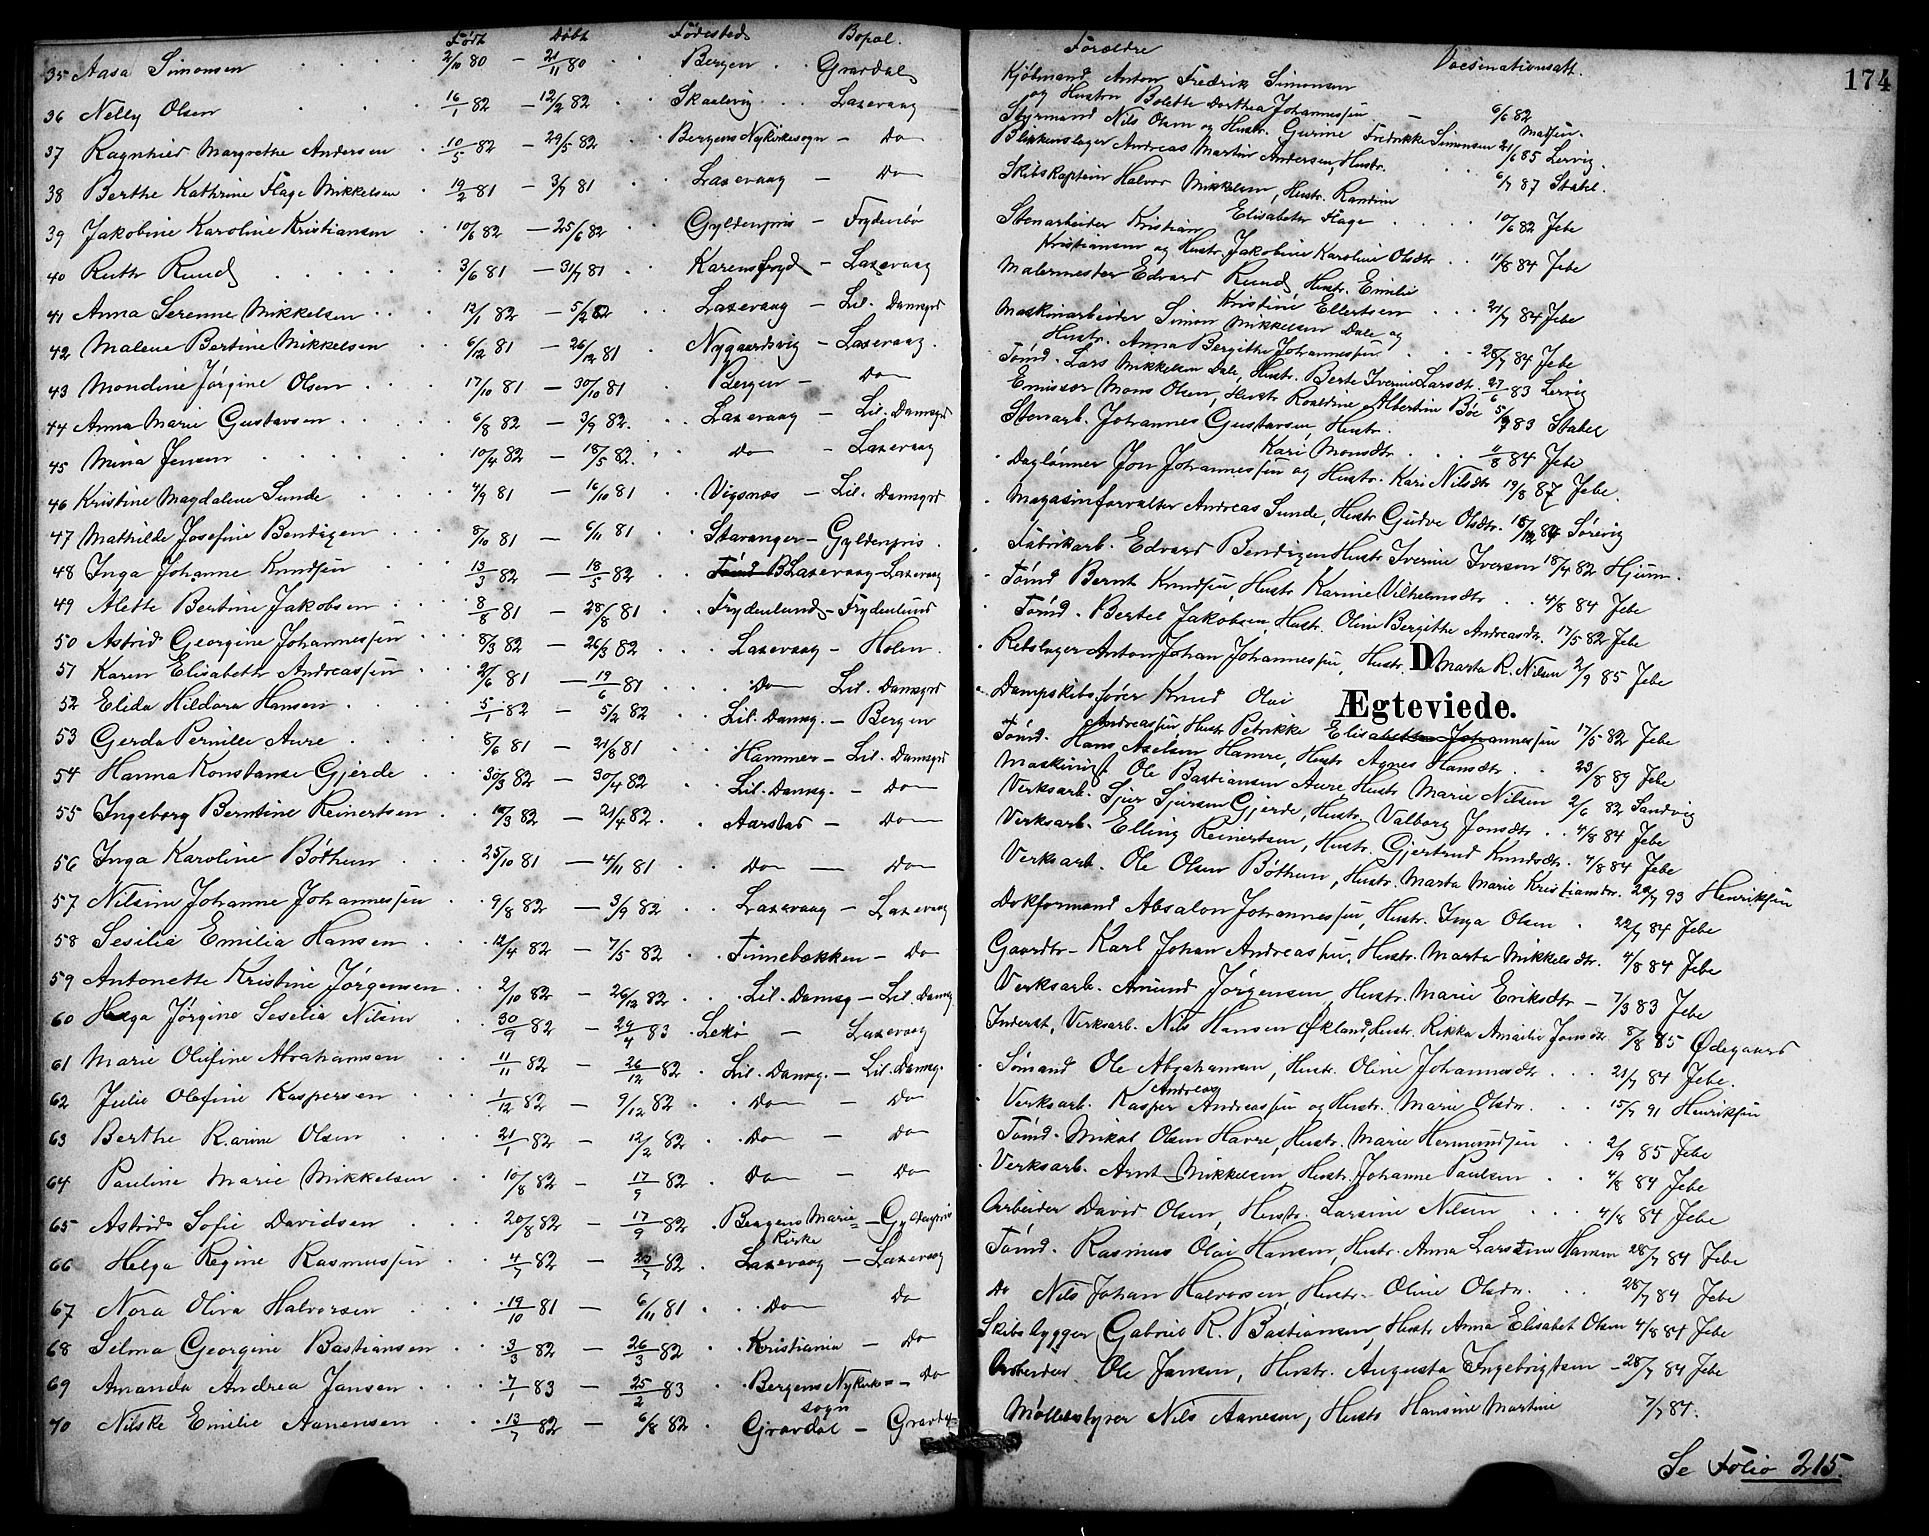 Født Døbt Fødested Bopæl.
35 Aasa Simonsen 2/10 80 — 21/11 80 Bergen Gravdal
36 Nelly Olsen 16/1 82 — 12/2 82 Skaalevig Laxevaag
37 Ragnhild Margrethe Andersen 10/5 82 — 29/5 82 Bergens Nykirkesogn — Do
38 Berthe Kathrine Flage Mikkelsen 19/2 81 — 3/7 81 Laxevaag — Do
39 Jakobine Karoline Kristiansen 10/6 82 — 25/6 82 Gyldenpris — Frydenbø
40 Ruth Ruud 3/6 81 — 31/7 81 Karensfryd — Laxevaag
41 Anna Serenne Mikkelsen 12/1 82 — 5/2 82 Laxevaag — Lil. Damsgrd
42 Malene Bertine Mikkelsen 6/12 81 — 26/12 81 Nygaardsvig — Laxevaag.
43 Mondine Jørgine Olsen 17/10 81 — 30/10 81 Bergen — Do
44 Anna Marie Gustavsen 6/8 82 — 3/9 82. Laxevaag — Lil. Damsgrd
45 Mina Jensen 10/4 82 — 18/5 82. Do — Laxevaag
46 Kristine Magdalene Sunde 4/9 81 — 16/10 81 Vigsnæs — Lil. Damsgrd
47 Mathilde Josefine Bendixen 8/10 81 — 6/11 81 Stavanger — Gyldenpris.
48 Inga Johanne Knudsen 13/3 82 — 18/5 82 Laxevaag — Laxevaag
49 Alette Bertine Jakobsen 8/8 81 — 28/8 81 Frydenlund — Frydenlund
50 Astrid Georgine Johannessen 8/3 82 — 26/3 82 Laxevaag — Holen.
51 Karen Elisabeth Andreassen 2/6 81 — 19/6 81 Do Lil. Damsgrd
52 Elida Hildora Hansen 5/1 82 — 5/2 82 Lil. Damsg. — Bergen
53 Gerda Pernille Aure 8/6 81 — 21/8 81 Hammer — Lil. Damsgrd
54 Hanna Konstanse Gjerde 30/3 82 — 30/4 82 Lil. Damsg. — Do
55 Ingeborg Berntine Reinertsen 10/3 82 — 21/4 82. Aarstad — Do
56 Inga Karoline Bøthun 25/10 81 — 4/11 81 Do — Do
57 Nilsine Johanne Johannessen 9/8 82 — 3/9 82 Laxevaag — Laxevaag
58 Sesilie Emilia Hansen 12/4 82 — 7/5 82 Finnebækken — Do
59 Antonette Kristine Jørgensen 2/10 82 — 26/12 82 Lil. Damsg — Lil. Damsg
60 Helga Jørgine Seselie Nilsen 30/9 82 — 29/4 83 Lekø — Laxevaag
61 Marie Olufine Abrahamsen 11/11 82 — 26/12 82 Lil. Damsg. — Lil. Damsg.
62 Julie Olefine Kaspersen 1/12 82 — 9/12 82 Do — Do
63 Berthe Karine Olsen 21/1 82 — 12/2 82 Do — Do
64 Pauline Marie Mikkelsen 10/8 82 — 17/9 82 Do — Do
65 Astrid Sofie Davidsen 20/8 82 — 17/9 82 Bergens Marie= — Gyldenpris
Kirke
66 Helga Regine Rasmussen 4/7 82 — 23/7 82. Laxevaag — Laxevaag
67 Nora Oliva Halvorsen 19/10 81 — 6/11 81 Do Do
68 Selma Georgine Bastiansen 3/3 82 — 26/3 82 Kristiania — Do
69 Amanda Andrea Jansen 7/1 83 — 25/2 83 Bergens Nykirke= — Do
sogn
70 Nilske Emilie Aanensen 13/7 82 — 6/8 82 Gravdal — Gravdal
174
Forældre Vaccinationsatt.
Kjøbmand Anton Fredrik Simonsen
og Hustru Bolette Dorthea Johannessen — 6/6 82
Madsen.
Styrmand Nils Olsen og Hustr. Gurine Fredrikke Simonsen 21/6 85 Lervig.
Blikkenslager Andreas Martin Andersen, Hustr. 6/7 87 Stabel.
Skibskaptein Halvor Mikkelsen, Hustr. Randine
Elisabeth Flage 10/6 82 Jebe
Stenarbeider Kristian
Kristiansen og Hustr. Jakobine Karoline Olsdtr 11/8 84 Jebe
Malermester Edvard Ruud, Hustr. Emilie
Kristine Ellertsen 21/7 84 Jebe
Maskinarbeider Simon Mikkelsen Dale og
Hustr. Anna Bergithe Johannessen 28/7 84 Jebe
Tømd. Lars Mikkelsen Dale, Hustr. Berte Iverine Larsdtr. 27/6 83 Lervig
Emissær Mons Olsen, Hustr Roaldine Albertine Bøe 5/9 83 Stabel
Stenarb. Johannes Gustavsen, Hustr.
Kari Monsdtr. 11/8 84 Jebe
Daglønner Jon Johannessen og Hustr. Kari Nilsdtr 19/8 87 Jebe.
Magasinforvalter Andreas Sunde, Hustr Gudve Olsdtr. 18/12 84 Sørvig
Fabrikarb. Edvard Bendixen Hustr Iverine Iversen 18/4 82 Hjum.
Tømd Bernt Knudsen, Hustr Karine Vilhelmsdtr 4/8 84 Jebe
Tømd. Bertel Jakobsen, Hustr. Oline Bergithe Andreasdr. 17/5 82 Jebe
Rebslager Anton Johan Johannessen, Hustr. Marta R. Nilsen 2/9 85 Jebe
D
Ægteviede.
Dampskibsfører Knud Olai
Andreassen Hustr Petrikke Elisabetha Johannessen 17/5 82 Jebe
Tømd. Hans Axelsen Hamre, Hustr Agnes Hansdtr 23/8 89 Jebe
Maskinist Ole Bastiansen Aure, Hustr Marie Nilsen 2/6 82 Sandvig
Verksarb. Sjur Sjursen Gjerde, Hustr. Valborg Jonsdtr 4/8 84 Jebe
Verksarb. Elling Reinertsen, Hustr. Gjertrud Knudsdtr. 4/8 84 Jebe
Verksarb. Ole Olsen Bøthun, Hustr. Marta Marie Kristiansdr. 20/7 93 Henriksen
Dokformand Absalon Johannessen, Hustr. Inga Olsen 22/7 84 Jebe
Gaardtr — Karl Johan Andreassen, Hustr. Marta Mikkelsdtr. 4/8 84 Jebe
Verksarb. Amund Jørgensen, Hustr. Marie Eriksdtr — 7/3 83 Jebe
Inderst, Verksarb. Nils Hansen Økland, Hustr. Rikka Amalie Jonsdtr 8/8 85 Ødegaard
Sømand Ole Abrahamsen, Hustr. Oline Johannesdtr 21/7 84 Jebe.
Andreas
Verksarb. Kasper Andreassen og Hustr. Marie Olsdr. 15/7 91 Henriksen
Tømd. Mikal Olsen Havre, Hustr. Marie Hermundsen 2/9 85 Jebe
Verksarb. Arnt Mikkelsen, Hustr. Johanne Paulsen 4/8 84 Jebe
Arbeider David Olsen, Hustr. Larsine Nilsen 4/8 84 Jebe
Tømd. Rasmus Olai Hansen, Hustr. Anna Larsdine Hansen 28/7 84 Jebe
Do Nils Johan Halvorsen Hustr. Oline Olsdr. 28/7 84 Jebe
Skibsbygger Gabriel R. Bastiansen, Hustr Anna Elisabet Olsen 4/8 84 Jebe
Arbeider Ole Jansen, Hustr. Augusta Ingebrigtsen — 28/7 84 Jebe
Møllebstyrer Nils Aanesen, Hustr Hansine Martine 7/7 84.
Se Folio 215.